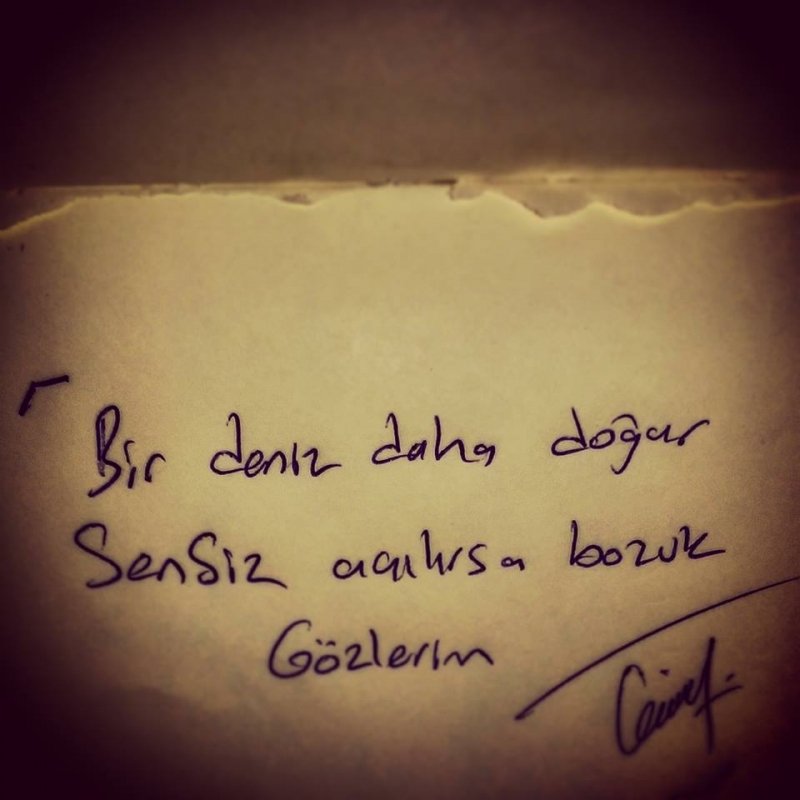 Bir deniz daha doğar
Sensiz açılırsa bozuk
Gözlerim